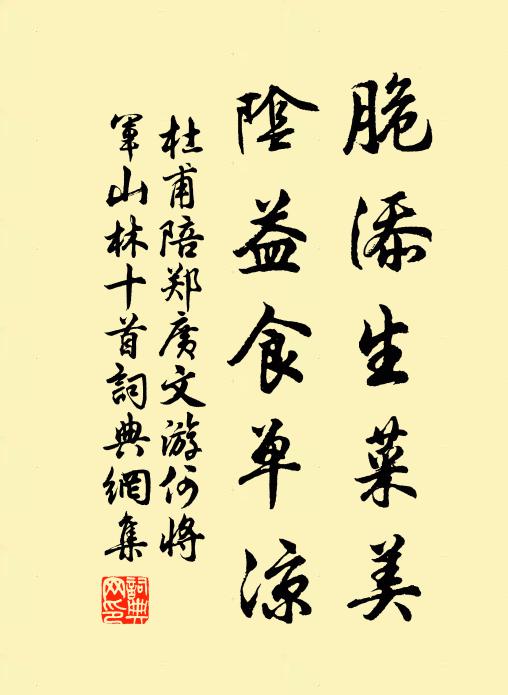 脆添生菜美
陰益食单涼
杜甫陪郑廣文游何將
軍山林十首詞典網集